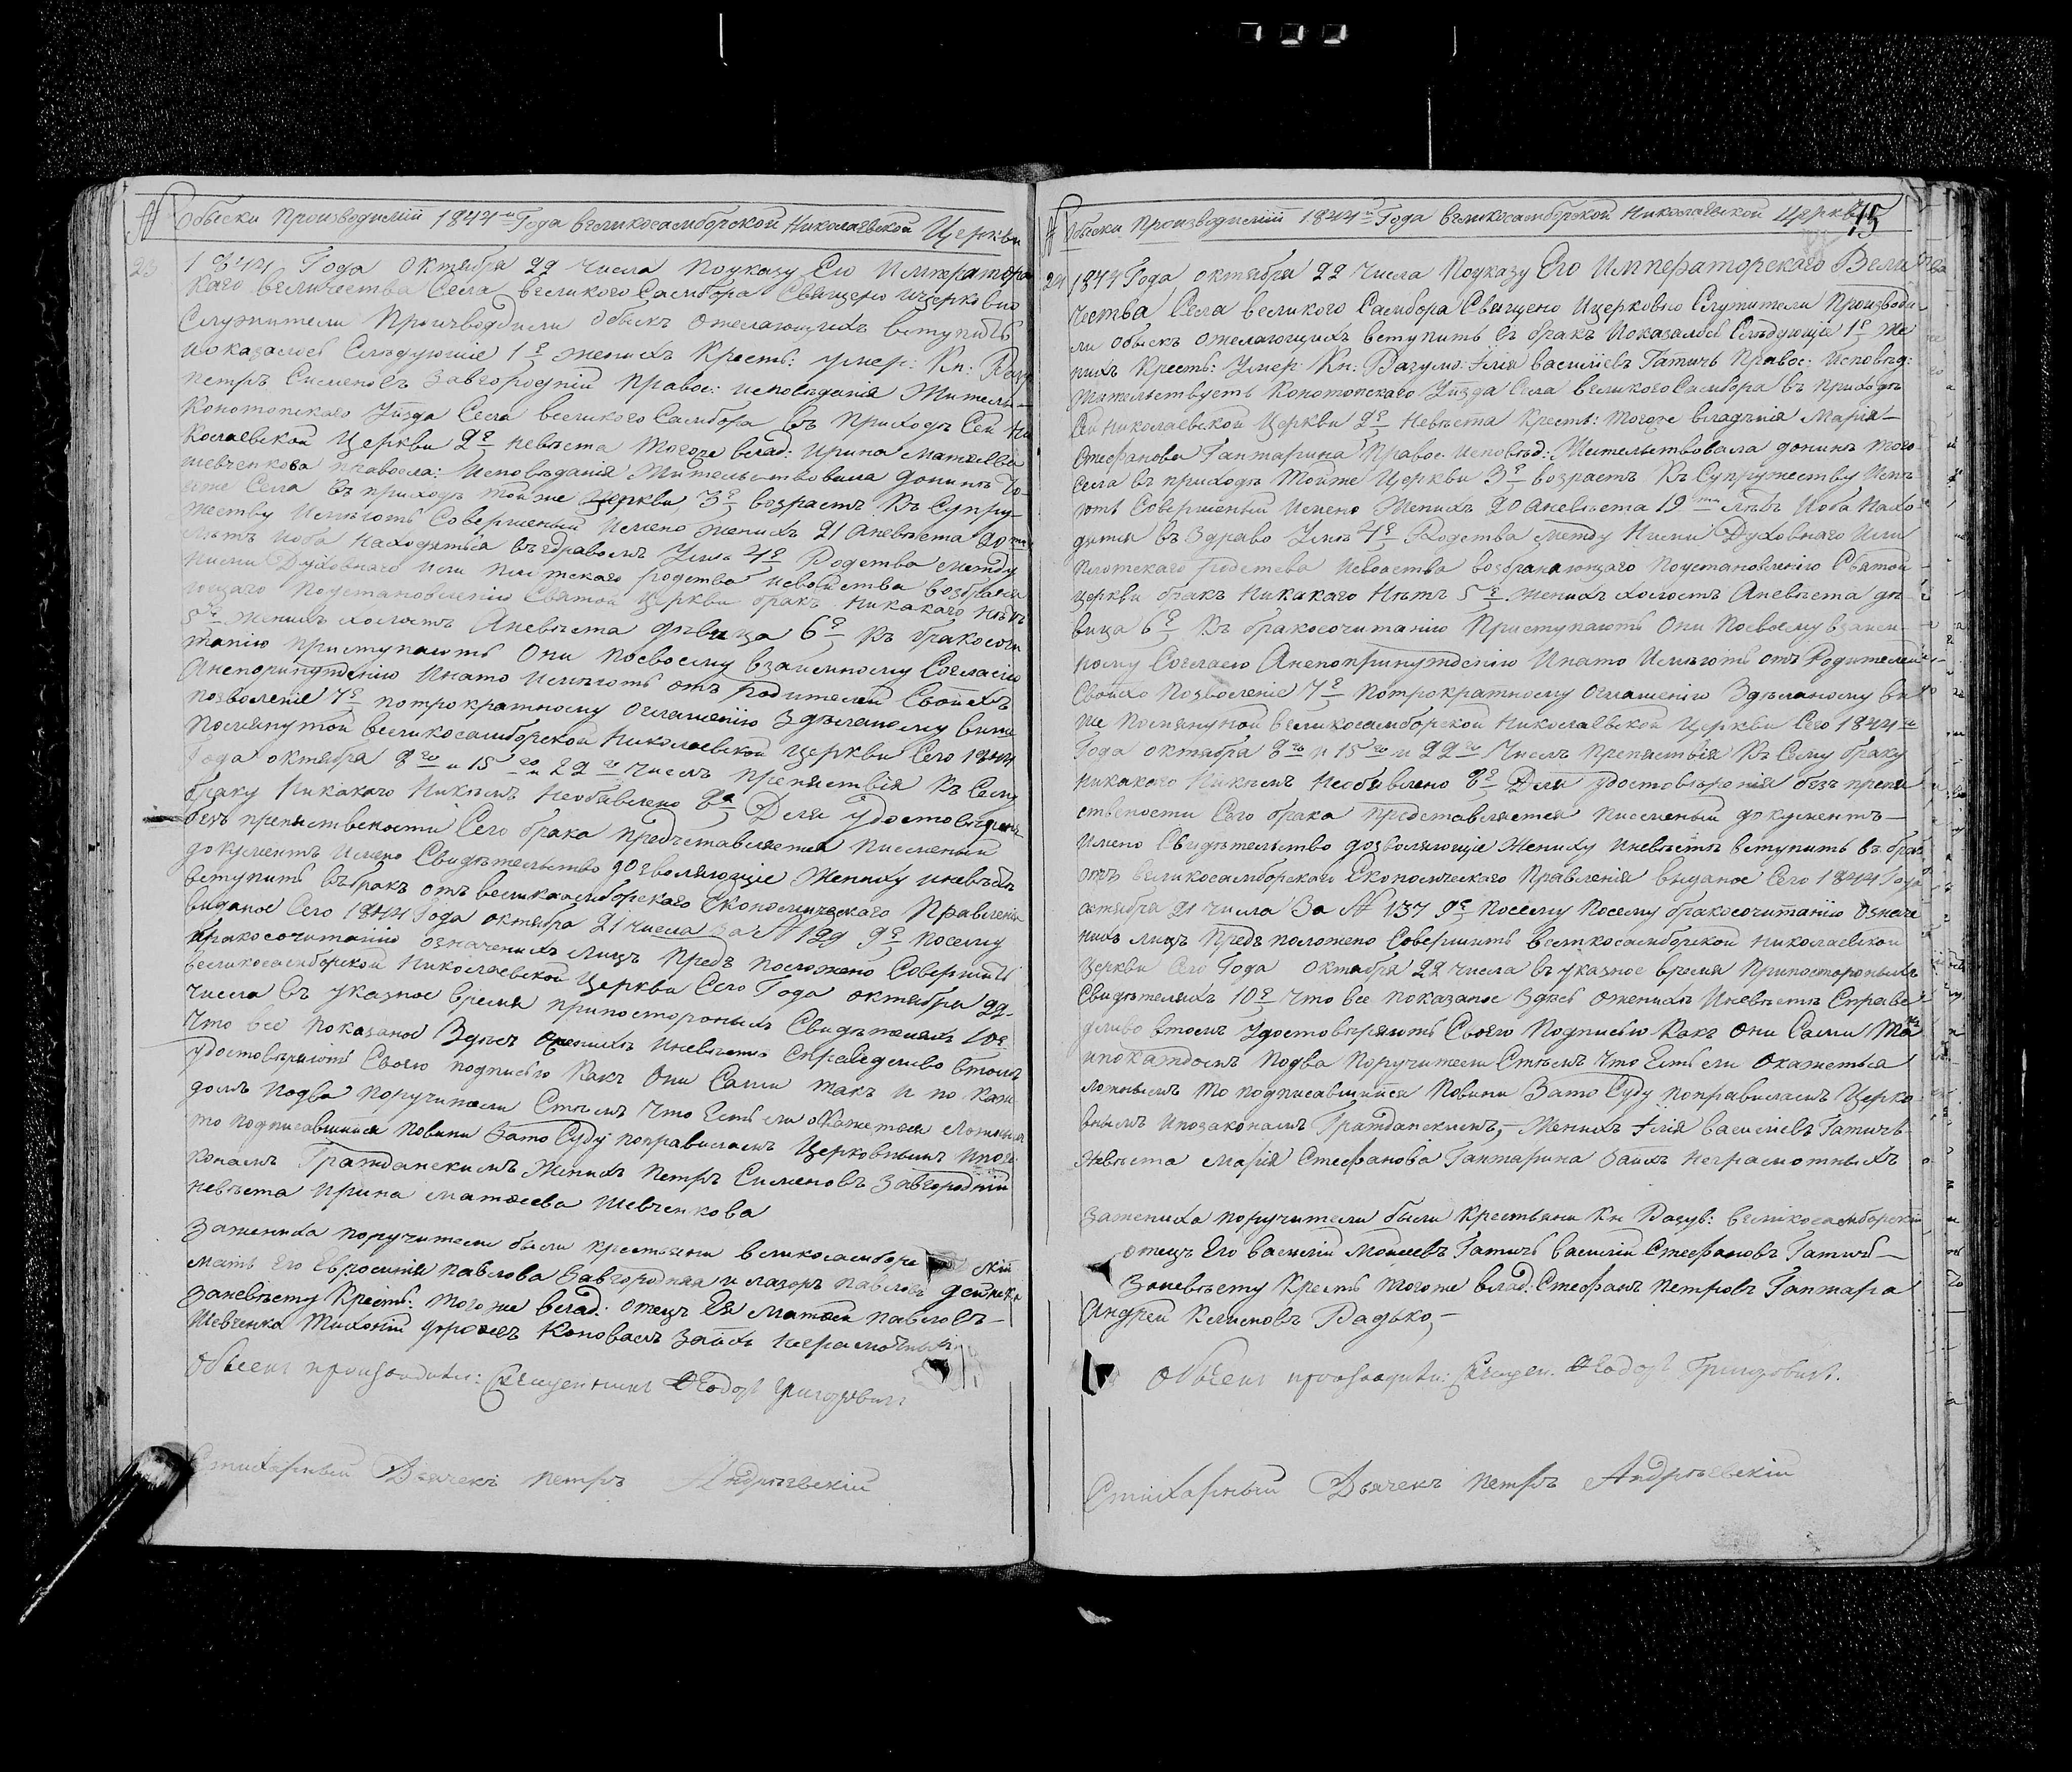 № Обыски Производимій 1844-го Года великосамборской Николаевской Церкви
23 1844 Года Октября 22 числа Поуказу Его Императорс
каго величества Села великого Самбора Священо ицерковно
Служители Производили Обыск ожелающихъ вступить
ипоказалось Слѣдующіе 1е женихъ Крестъ: умер: Кн: Разу
петръ Сименовъ Завгородній Правос: исповѣданія Житель
Конотопского Уѣзда Села великого Самбора въ Приходѣ Сей Ни
Колаевской Церкви 2е невѣста Тогоже влад: Ирина Матѳеева
шевченкова правосла: Исповѣданія Жительствовала донинѣ То
гоже Села въ приходѣ тойже Церкви 3е возрастъ Къ Супру-
жеству Имѣютъ Совершеный Имено женихъ 21 Аневѣста 20ти
лѣтъ Иоба находятся въздравомъ Умѣ 4е Родства между
ними Духовнаго или плотскаго родства исвойства возбраня
ющаго Поустановленію Святой Церкви бракъ никакаго нѣтъ
5е женихъ холостъ Аневѣста дѣвица 6е Къ бракосоче
танію приступаютъ Они посвоему взаимному Согласію
Инепоринужденію Инато Имѣютъ отъ Родителей Своихъ
позволеніе 7е потрократному оглашенію Здѣланому више
помянутой великосамборской Николаевской Церкви Сего 1844
Года октября 8го и 15го и 22го Числъ препятствія Къ Сему
браку Никакаго Никѣмъ необявлено 8е Для Удостовѣренія
безъ препятствености Сего брака предъставляется писменый
документъ Имено Свидѣтельство дозволяющіе Жениху иневѣстѣ
вступить въбракъ отъ великосамборскаго Економическаго Правленія
виданое Сего 1844 Года октября 21 числа за № 122 9е посему
бракосочитанію означенихъ лицъ предъ положено Совершить
великосамборской Николаевской Церкви Сего Года октября 22
Числа въ указное время припостороныхъ Свидѣтеляхъ 10е
Что все показаное Здѣсь ожених иневѣсте Справедливо втомъ
удостовѣряютъ Своею подписью Какъ Они Сами такъ и по каж
домъ подва поручители Стѣмъ Что Естьли окажется ложным
то подписавшийся повини Зато Суду поправиламъ Церковнымъ ипоза
конамъ Гражданскимъ Женихъ Петръ Сименовъ Завгородній
невѣста Ирина матѳеева Шевченкова
Зажениха поручители были крестьяни великосамборс скій
мать Его Евросинія павлова Завгородняя и лазоръ павловъ дейнека
Заневѣсту Крестъ: тогоже влад: отецъ Ея Матвей павловъ
Шевченка Тихоній Коновалъ Заихъ неграмотныхъ
Обыскъ производили: Священникъ Ѳеодоръ Григоровичъ
Стихарный Дьячекъ Петръ Андрѣевскій
15
№ Обыски Производимій 1844-го Года великосамборской Николаевской Церкви
24 1844 Года октября 22 Числа Поуказу Его Императорскаго Вели
чества Села великого Самбора Священо Ицерковно Служители Производи
ли обыскъ ожелающихъ вступить въ бракъ Ипоказалось Слѣдующіе 1е же
нихъ Крестъ: Умер: Кн: Разумо: Ілія василіевъ Гатичъ Правос: Исповѣд:
Жительствуетъ Конотопскаго Уѣзда Села великого Самбора въ приходѣ
Сей Николаевской Церкви 2е Невѣста Крестъ: Тогоже владѣнія Марія
Стефанова Гантарина Правос: Исповѣд: Жительствовала донинѣ того
Села въ приходѣ тойже Церкви 3е возрастъ Къ Супружеству Имѣ
ютъ Совершеный Имено Женихъ 20 Аневѣста 19ти лѣтъ Иоба Нахо
дятся въ Здраво Умѣ 4е Родства между Ними Духовнаго Или
Плотскаго родства Исвоства возбраняющаго Поустановленію Святой
Церкви бракъ Никакаго Нѣтъ 5е женихъ холостъ Аневѣста дѣ
вица 6е Къ бракосочитанію Приступаютъ Они Посвоему взаим-
ному Согласию Анепопринужденію Инато Имѣютъ отъ Родителей
Своихъ Позволеніе 7е Потрократному Оглашенію Здѣланому ви
ше Помянуной великосамборской Николаевской Церкви Сего 1844го
Года октября 8го и 15го и 22го Числъ препятствія Къ Сему браку
Никакого Никѣмъ Необявлено 8е Для Удостовѣренія безъ препя
ствености Сего брака представляется писменый документъ
Имено Свидѣтельство дозволяющіе Жениху Иневѣстѣ вступить въ брак
отъ великосамборскаго Економическаго Правленія выданое Сего 1844 Года
октября 21 числа За № 137 9е Посему Посему бракосочитанію Означе
нихъ лицъ Предъ положено Совершить великосамборской Николаевской
Церкви Сего Года Октября 22 числа въ указное время Припосторонныхъ
Свидѣтеляхъ 10е Что все показаное Здѣсь ожених Иневѣстѣ Справе
дливо втомъ Удостовѣряютъ Своею Подписью Какъ Они Сами Такъ
ипокаждомъ Подва Поручители Стѣмъ Что Естьли Окажеться
ложнымъ то подписавшийся Повини Зато Суду поправиламъ Церко
внымъ Ипозаконамъ Гражданскимъ, Женихъ Ілія василіевъ Гатичъ
Невѣста Марія Стефанова Гантарина Заихъ Неграмотныхъ
Зажениха поручители были Крестьяни Кн Разув: великосамборскій
отецъ Его василій Моисеевъ Гатичъ василій Стефановъ Гатичъ
Заневѣсту Крестъ тогоже влад: Стефанъ Петровъ Гантара
Андрей Климовъ Радько,
Обыскъ производили: Священ. Ѳеодоръ Григоровичъ.
Стихарный Дьячекъ Петръ Андрѣевскій